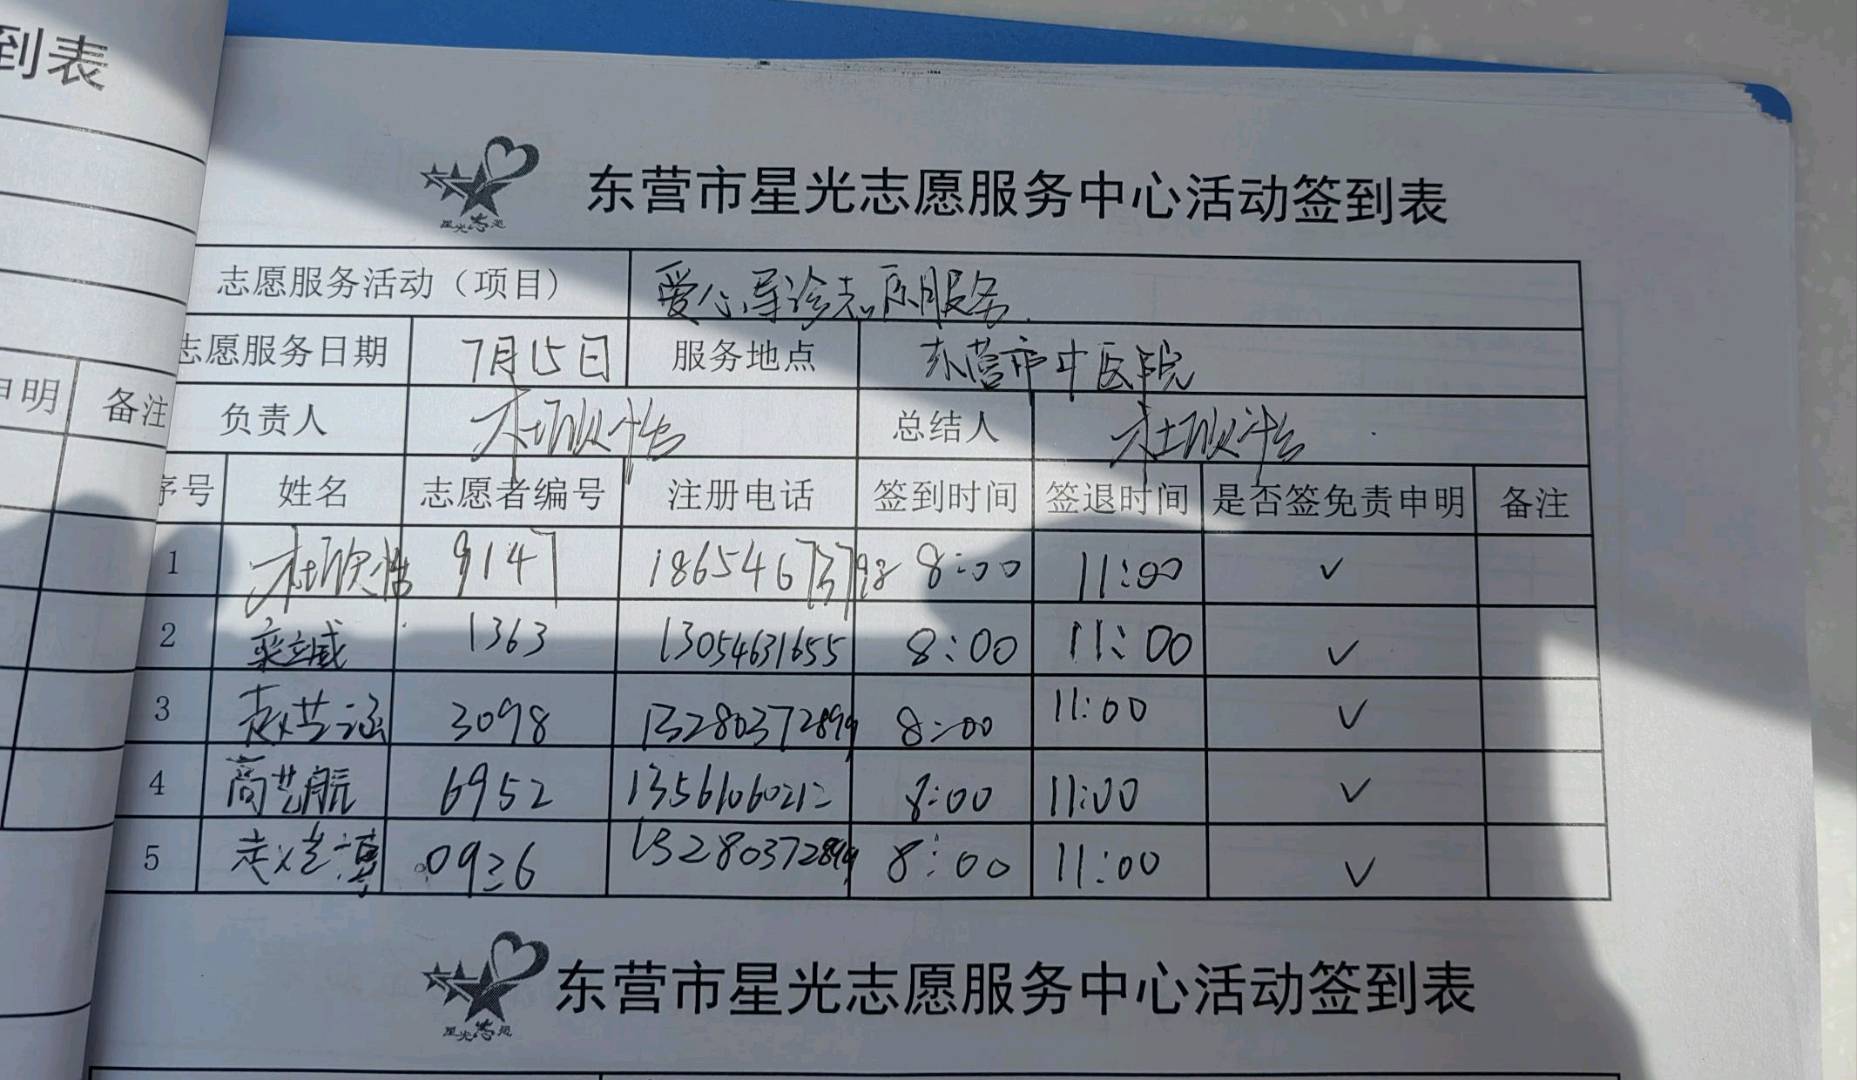 到表
申明 备注
星光志愿
东营市星光志愿服务中心活动签到表
志愿服务活动（项目） 爱心导诊志愿服务
志愿服务日期 7月15日 服务地点 东营市中医院
负责人 杜欣怡 总结人 杜欣怡
序号 姓名 志愿者编号 注册电话 签到时间 签退时间 是否签免责申明 备注
1 杜欣怡 9147 8:00 11:00 ✓
2 1363 13054631655 8:00 11:00 ✓
3 赵艺涵 3098 13280372899 8:00 11:00 ✓
4 商艺航 6952 13561060212 8:00 11:00 ✓
5 0936 13280372899 8:00 11:00 ✓
星光志愿
东营市星光志愿服务中心活动签到表